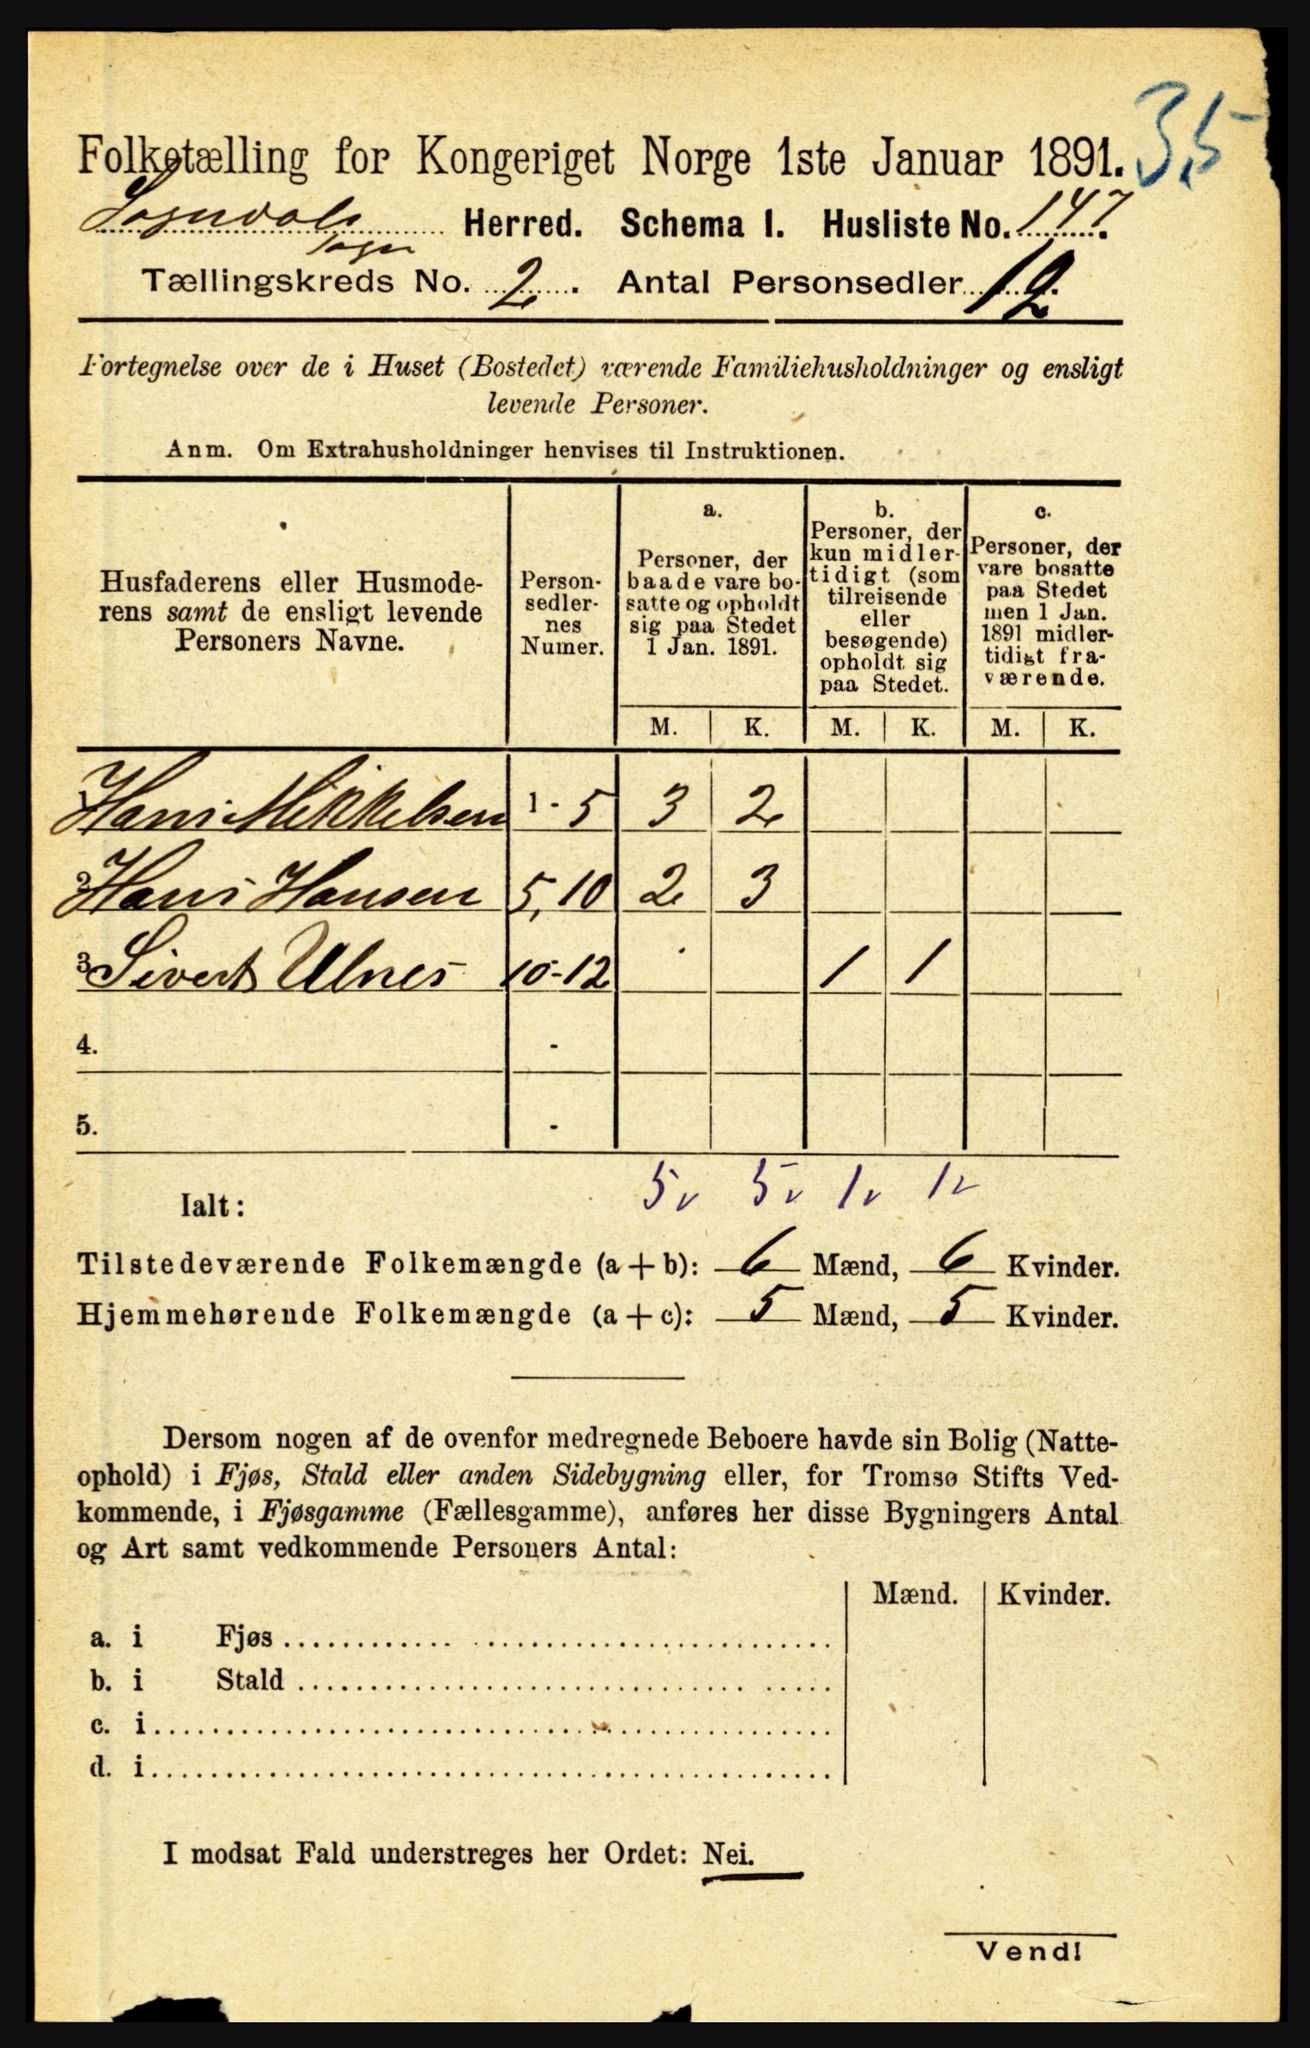 3,5
Folketælling for Kongeriget Norge 1ste Januar 1891.
Sogndals Herred. Schema I. Husliste No. 147.
Sogn
Tællingskreds No. 2. Antal Personsedler 12.
Fortegnelse over de i Huset (Bostedet) værende Familiehusholdninger og ensligt
levende Personer.
Anm. Om Extrahusholdninger henvises til Instruktionen.
Husfaderens eller Husmode-
rens samt de ensligt levende
Personers Navne.
Person-
sedler-
nes
Numer.
a.
Personer, der
baade vare bo-
satte og opholdt
sig paa Stedet
1 Jan. 1891.
b.
Personer, der
kun midler-
tidigt (som
tilreisende
eller
besøgende)
opholdt sig
paa Stedet.
c.
Personer, der
vare bosatte
paa Stedet
men 1 Jan.
1891 midler-
tidigt fra-
værende.
M. K. M. K. M. K.
1. Hans Mikkelsen 1 - 5 3 2
2. Hans Hansen 5, 10 2 3
3. Sivert Ulnes 10-12 1 1
4. -
5. -
Ialt: 5 5 1 1
Tilstedeværende Folkemængde (a + b): 6 Mænd, 6 Kvinder.
Hjemmehørende Folkemængde (a + c): 5 Mænd, 5 Kvinder.
Dersom nogen af de ovenfor medregnede Beboere havde sin Bolig (Natte-
ophold) i Fjøs, Stald eller anden Sidebygning eller, for Tromsø Stifts Ved-
kommende, i Fjøsgamme (Fællesgamme), anføres her disse Bygningers Antal
og Art samt vedkommende Personers Antal:
Mænd. Kvinder.
a. i Fjøs
b. i Stald
c. i
d. i
I modsat Fald understreges her Ordet: Nei.
Vend!